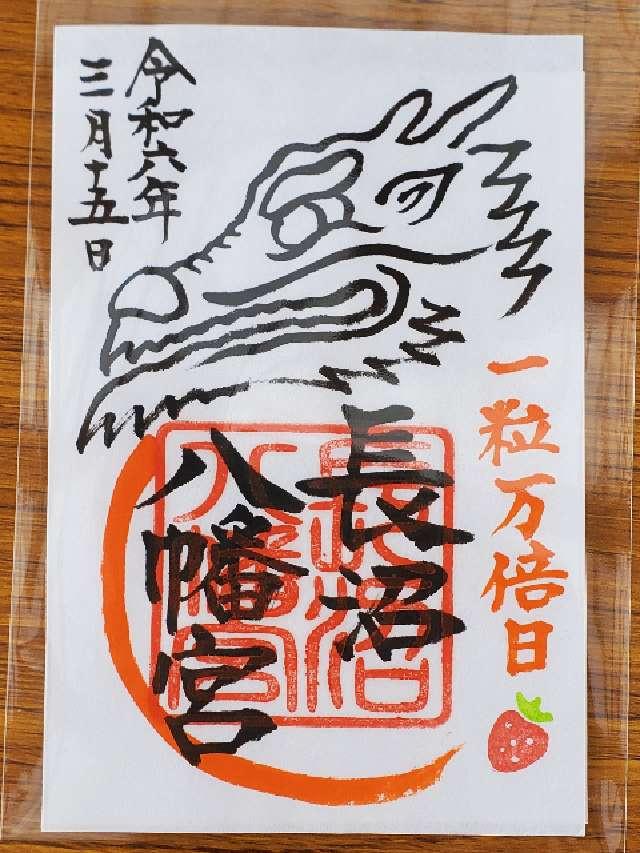 一粒万倍日
長沼
八幡宮
令和六年
三月十五日
長沼
八幡宮